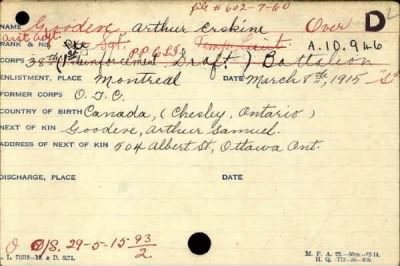 file # 602-7-60
NAME Goodeve Arthur Erskine Over D
RANK & NO. Pte Sgt. Lieutenant A.10.946
P.P.C.L.I.
CORPS 38th (1st Reinforcement Draft) Battalion
ENLISTMENT, PLACE Montreal DATE March 8th, 1915
FORMER CORPS O.T.C.
COUNTRY OF BIRTH Canada, (Chesley, Ontario)
NEXT OF KIN Goodeve, Arthur Samuel.
ADDRESS OF NEXT OF KIN 504 Albert St, Ottawa Ont.
DISCHARGE, PLACE DATE
O O/S. 29-5-15 93/2.
M. F. A. 22.
H. Q.